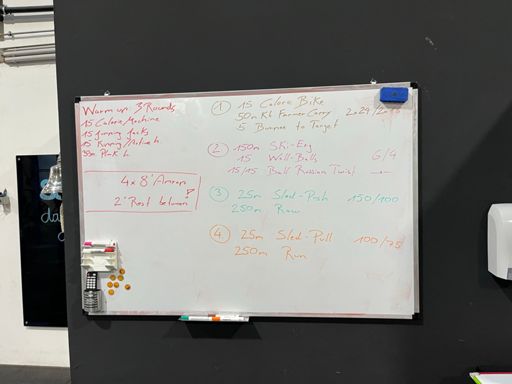 Warm up: 3 Rounds
15 Calorie Machine
15 jumping Jacks
15 Running
Plank
4x8' Amrap
2' Rest between
① 15 Calorie Bike
50m Kb Farmer Carry 2x24/2x
5 to Target
② 150m Ski-Erg
15 Wall-Balls 6/4
15/15 Ball Russian Twist
③ 25m Sled-Push 150/100
250m Row
④ 25m Sled-Pull 100/75
250m Run